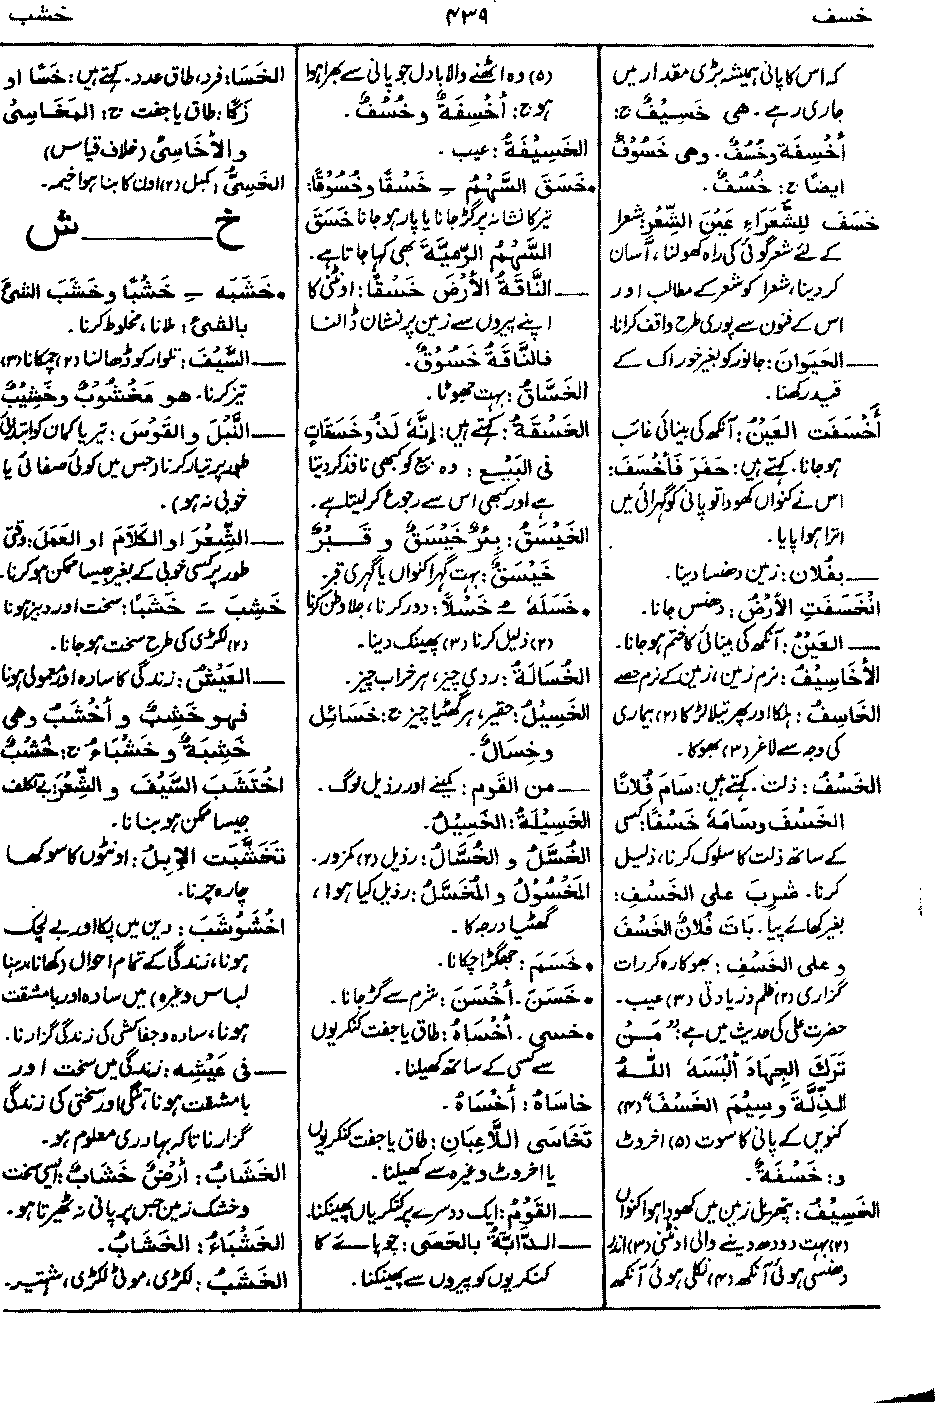 خسف
۴۳۹
خشب
کہ اس کا پانی ہمیشہ بڑی مقدار میں
جاری رہے۔ هی خَسِیْفٌ ج:
أَخْسِفَة وخُسُفٌ۔ وهی خَسُوْفٌ
ایضًا ج: خُسُفٌ۔
خَسَفَ لِلشُّعَرَاءِ عَیْنَ الشِّعْرِ: شعرا
کے لئے شعر گوئی کی راہ کھولنا، آسان
کر دینا، شعرا کو شعر کے مطالب اور
اس کے فنون سے پوری طرح واقف کرانا۔
— الحَیَوانَ: جانور کو بغیر خوراک کے
قید رکھنا۔
أَخْسَفَت العَیْنُ: آنکھ کی بینائی غائب
ہو جانا۔ کہتے ہیں: حَفَرَ فَأَخْسَفَ:
اس نے کنواں کھودا تو پانی کو گہرائی میں
اترا ہوا پایا۔
— بِفُلان: زمین دھنسا دینا۔
انْخَسَفَتِ الأَرْضُ: دھنس جانا۔
— العَیْنُ: آنکھ کی بینائی کا ختم ہو جانا۔
الأَخَاسِیْفُ: نرم زمین، زمین کے نرم حصے
الخَاسِفُ: ہلکا اور پھرتیلا لڑکا (۲) بیماری
کی وجہ سے لاغر (۳) بھوکا۔
الخَسْفُ: ذلت۔ کہتے ہیں: سَامَ فُلَانًا
الخَسْفَ وسَامَهٗ خَسْفًا: کسی
کے ساتھ ذلت کا سلوک کرنا، ذلیل
کرنا۔ شَرِبَ علی الخَسْفِ:
بغیر کھائے پیا۔ بَاتَ فُلَانٌ الخَسْفَ
و علی الخَسْفِ: بھوکا رہ کر رات
گزاری (۲) ظلم و زیادتی (۳) عیب۔
حضرت علی کی حدیث میں ہے: "مَنْ
تَرَكَ الجِهَادَ أَلْبَسَهُ اللّٰهُ
الذِّلَّةَ وسِیْمَ الخَسْفَ" (۴)
کنویں کے پانی کا سوت (۵) اخروٹ
و: خَسْفَةٌ۔
الخَسِیْفُ: پتھریلی زمین میں کھودا ہوا کنواں
(۲) بہت دودھ دینے والی اونٹنی (۳) اندر
دھنسی ہوئی آنکھ (۴) نکلی ہوئی آنکھ
(۵) وہ اٹھنے والا بادل جو پانی سے بھرا ہوا
ہو ج: أَخْسِفَةٌ وخُسُفٌ۔
الخَسِیْفَةُ: عیب۔
• خَسَقَ السَّهْمُ ـِ خَسْقًا وخُسُوْقًا:
تیر کا نشانہ پر گڑ جانا یا پار ہو جانا خَسَقَ
السَّهْمُ الرَّمِیَّةَ بھی کہا جاتا ہے۔
— النَّاقَةُ الأَرْضَ خَسْقًا: اونٹنی کا
اپنے پیروں سے زمین پر نشان ڈالنا
فالنَّاقَةُ خَسُوْقٌ۔
الخَسَّاقُ: بہت جھوٹا۔
الخَسْقَةُ: کہتے ہیں: إِنَّهٗ لَذُو خَسَقَاتٍ
فی البَیْعِ: وہ بیع کو کبھی نافذ کر دیتا
ہے اور کبھی اس سے رجوع کر لیتا ہے۔
الخَیْسَقُ: بِئْرٌ خَیْسَقٌ و قَبْرٌ
خَیْسَقٌ: بہت گہرا کنواں یا گہری قبر
• خَسَلَهٗ ـُ خَسْلًا: دور کرنا، جلا وطن کرنا
(۲) ذلیل کرنا (۳) پھینک دینا۔
الخُسَالَةُ: ردی چیز، ہر خراب چیز۔
الخَسِیْلُ: حقیر، ہر گھٹیا چیز ج: خَسَائِل
وخِسَالٌ۔
— من القَوم: کمینے اور رذیل لوگ۔
الخَسِیْلَةُ: الخَسِیْلُ۔
الخُسَّلُ و الخُسَّالُ: رذیل (۲) کمزور۔
المَخْسُوْلُ و المُخَسَّلُ: رذیل کیا ہوا،
گھٹیا درجہ کا۔
• خَسَمَ: جھگڑا چکانا۔
• خَسَنَ۔ أَخْسَنَ: شرم سے گڑ جانا۔
• خسی۔ أَخْسَاهُ: طاق یا جفت کنکریوں
سے کسی کے ساتھ کھیلنا۔
خاسَاهُ: أَخْسَاهُ۔
تَخَاسَی اللَّاعِبَانِ: طاق یا جفت کنکریوں
یا اخروٹ وغیرہ سے کھیلنا۔
— القَوْمُ: ایک دوسرے پر کنکریاں پھینکنا۔
— الدَّابَّةُ بالحَصَی: چوپائے کا
کنکریوں کو پیروں سے پھینکنا۔
الخَسَا: فرد، طاق عدد۔ کہتے ہیں: خَسًا او
زَكًا: طاق یا جفت ج: المَخَاسِیْ
والأَخَاسِیْ (خلاف قیاس)
الخَسِیُّ: کمبل (۲) اون کا بنا ہوا خیمہ۔
خ — ش
• خَشَبَه ـِ خَشْبًا وخَشَبَ الشیَٔ
بالشیٔ: ملانا، مخلوط کرنا۔
— السَّیْفَ: تلوار کو ڈھالنا (۲) چمکانا (۳)
تیز کرنا۔ هو مَخْشُوْبٌ وخَشِیْبٌ
— النَّبْلَ والقَوْسَ: تیر یا کمان کو ابتدائی
طور پر تیار کرنا (جس میں کوئی صفائی یا
خوبی نہ ہو)۔
— الشِّعْرَ او الکَلَامَ او العَمَلَ: وقتی
طور پر کسی خوبی کے بغیر جیسا ممکن ہو کرنا۔
خَشِبَ ـَ خَشَبًا: سخت اور دبیز ہونا
(۲) لکڑی کی طرح سخت ہو جانا۔
— العَیْشُ: زندگی کا سادہ اور معمولی ہونا
فهو خَشِبٌ و أَخْشَبُ وهی
خَشِبَةٌ و خَشْبَاءُ ج: خُشْبٌ
اخْتَشَبَ السَّیْفَ و الشِّعْرَ: بے تکلف
جیسا ممکن ہو بنانا۔
تَخَشَّبَت الإِبِلُ: اونٹوں کا سوکھا
چارہ چرنا۔
اخْشَوْشَبَ: دین میں پکا اور بے لچک
ہونا، زندگی کے تمام احوال (کھانا، پینا
لباس وغیرہ) میں سادہ اور با مشقت
ہونا، سادہ و جفاکشی کی زندگی گزارنا۔
— فی عَیْشِه: زندگی میں سخت اور
با مشقت ہونا، تنگی اور سختی کی زندگی
گزارنا تاکہ بہادری معلوم ہو۔
الخَشَابُ: أَرْضٌ خَشَابٌ: ایسی سخت
و خشک زمین جس پر پانی نہ ٹھیرتا ہو۔
الخَشْبَاءُ: الخَشَابُ۔
الخَشَبُ: لکڑی، موٹی لکڑی، شہتیر۔